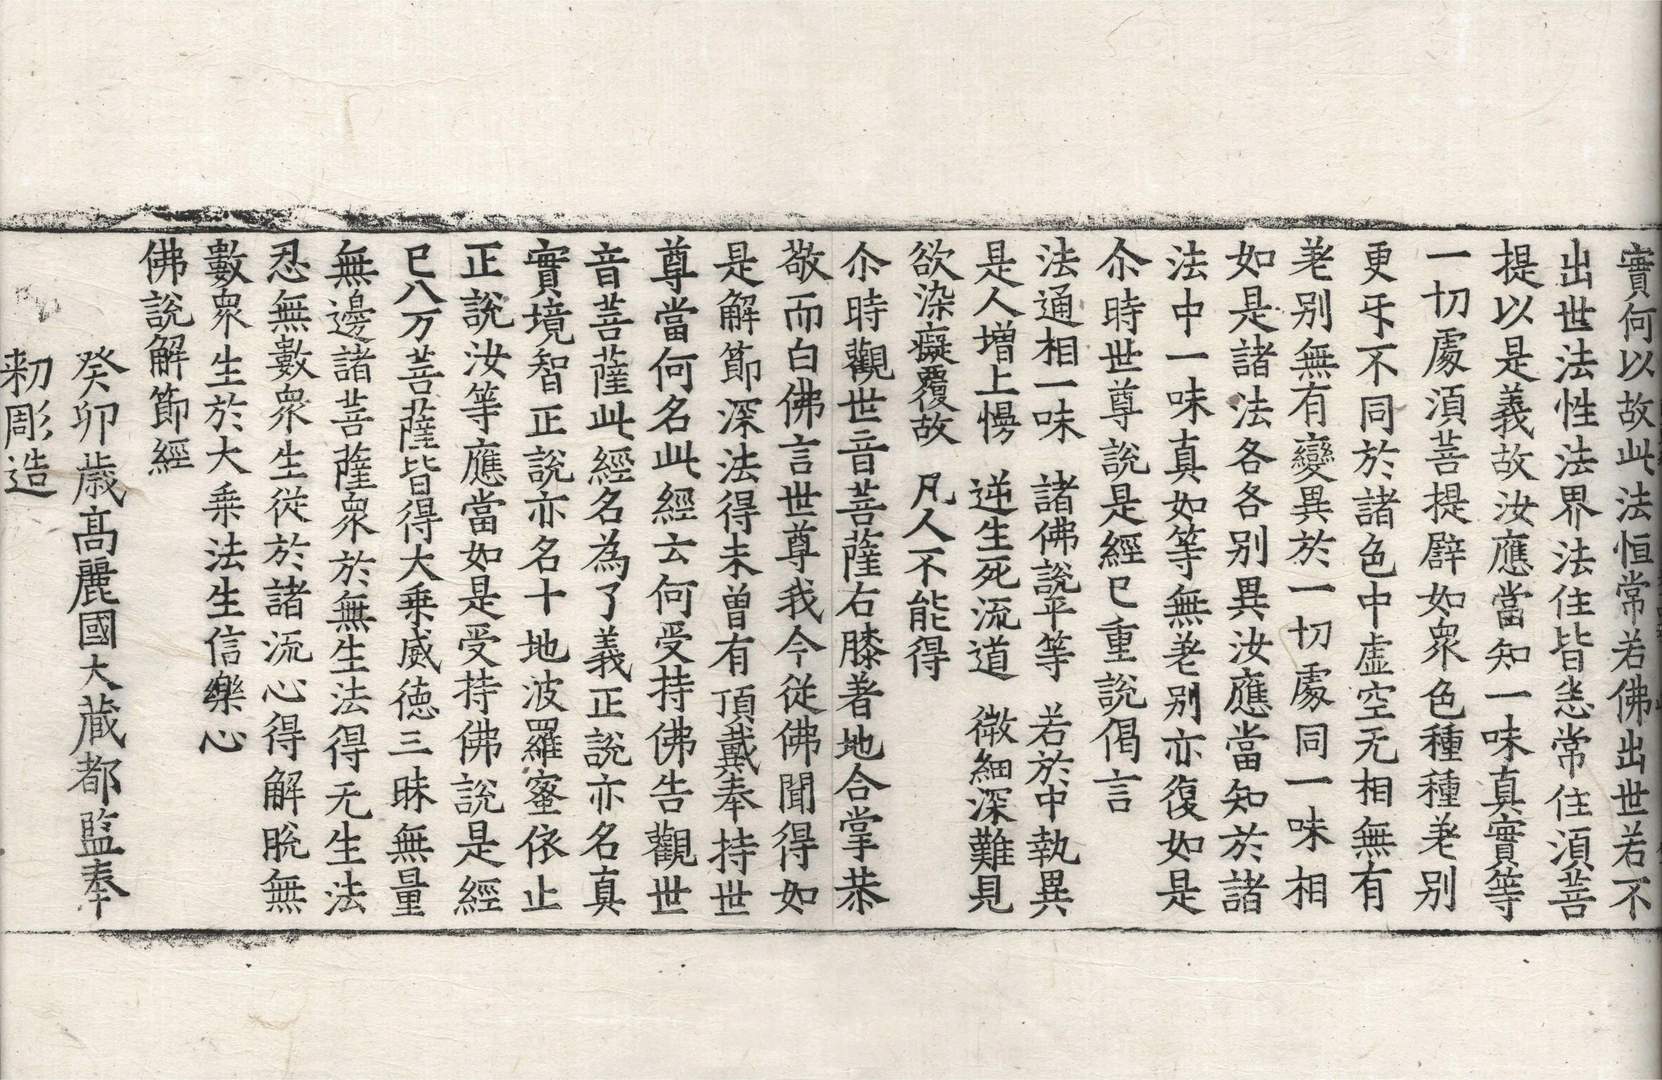 實何以故此法恒常若佛出世若不
出世法性法界法住皆悉常住湏菩
提以是義故汝應當知一味真實等
一切處湏菩提譬如衆色種種差别
更㸦不同於諸色中虛空无相無有
差别無有變異於一切處同一味相
如是諸法各各别異汝應當知於諸
法中一味真如等無差别亦復如是
尒時世尊說是經已重說偈言
法通相一味　諸佛說平等　若於中執異
是人增上慢　逆生死流道　微細深難見
欲染癡覆故　凡人不能得
尒時觀世音菩薩右膝著地合掌恭
敬而白佛言世尊我今從佛聞得如
是解節深法得未曾有頂戴奉持世
尊當何名此經云何受持佛告觀世
音菩薩此經名為了義正說亦名真
實境智正說亦名十地波羅蜜依止
正說汝等應當如是受持佛說是經
已八万菩薩皆得大乗威徳三昧無量
無邊諸菩薩衆於無生法得无生法
忍無數衆生從於諸流心得解脫無
數衆生於大乗法生信樂心
佛說解節經
癸卯歲髙麗國大藏都監奉
勑彫造